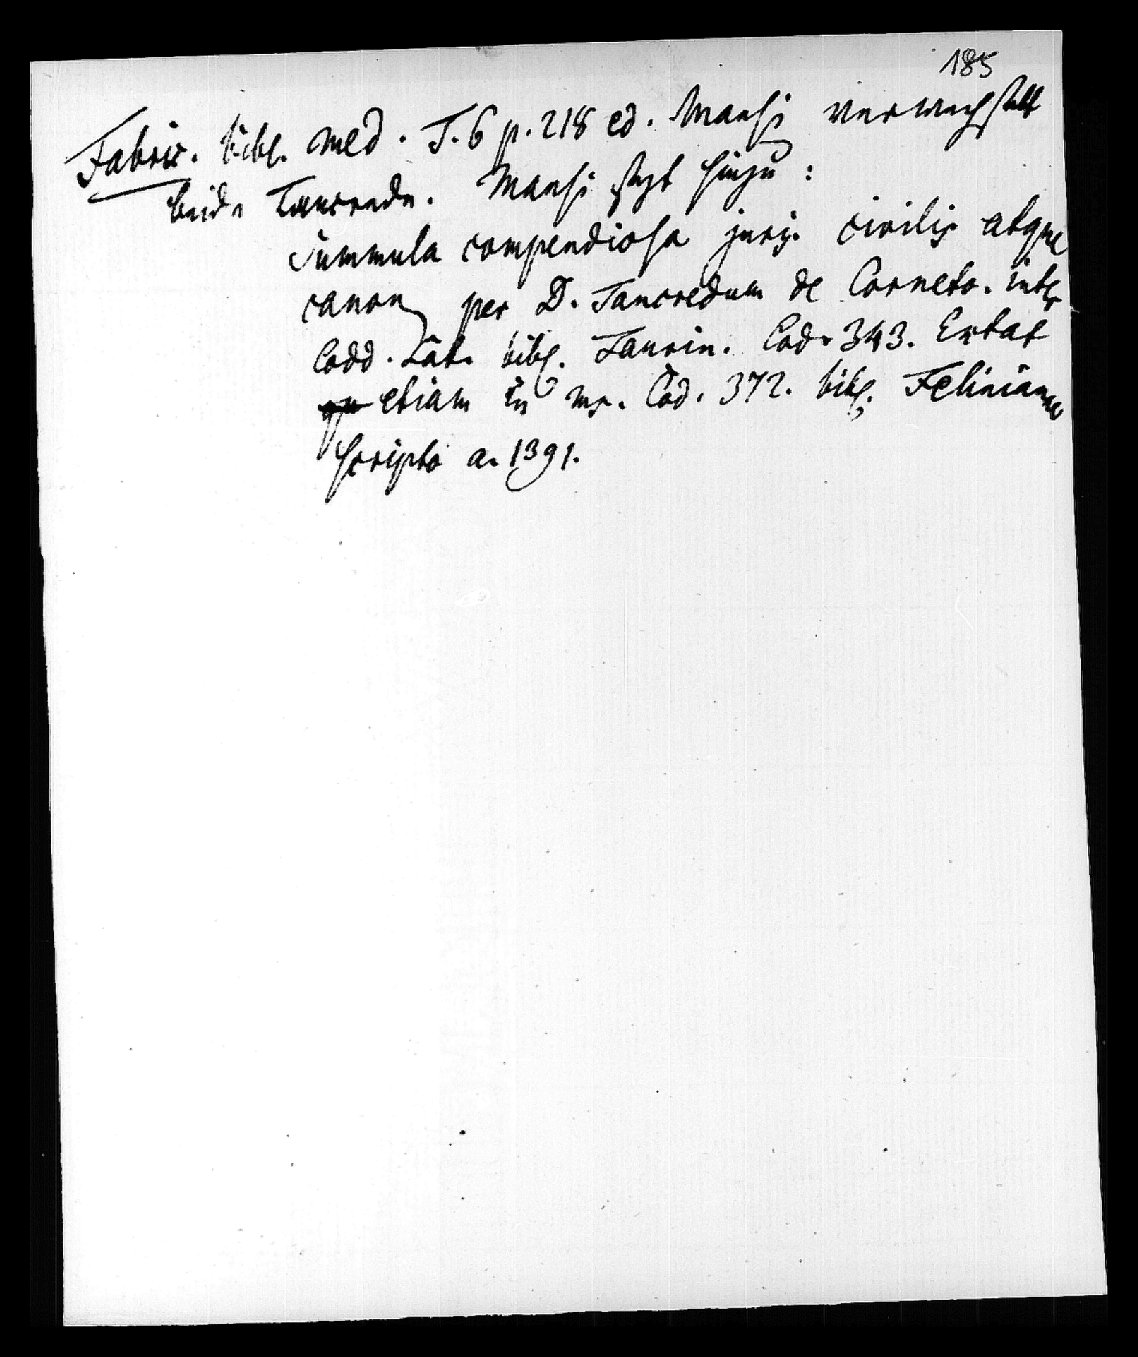 185
Fabric. bibl. med. T. 6 p. 218 ed. Mansi verwechselt
beide Tancrede. Mansi setzt hinzu:
Summula compendiosa juris civilis atque
canon. per D. Tancredum de Corneto. inter
Codd. Lat. bibl. Taurin. Cod. 343. Extat
etiam in ms. Cod. 372. bibl. Feliniana
scripto a. 1391.